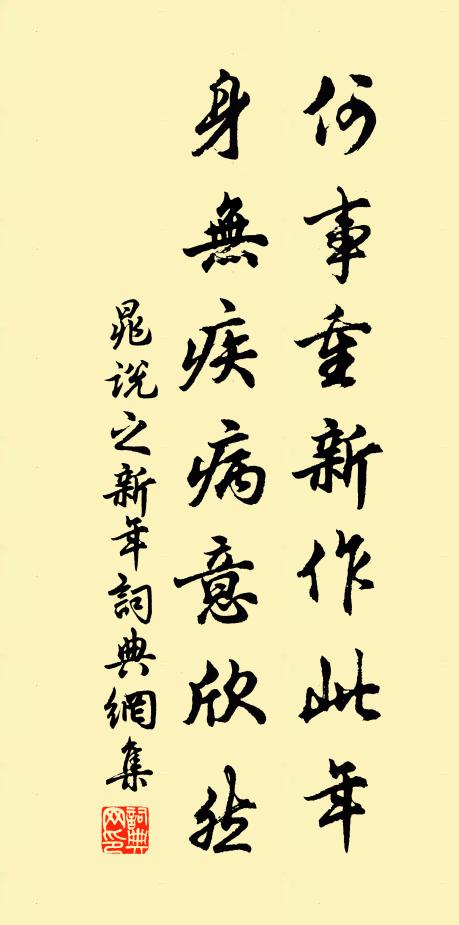 何事重新作此年
身無疾病意欣然
晁説之新年詞典網集
詞典
网印